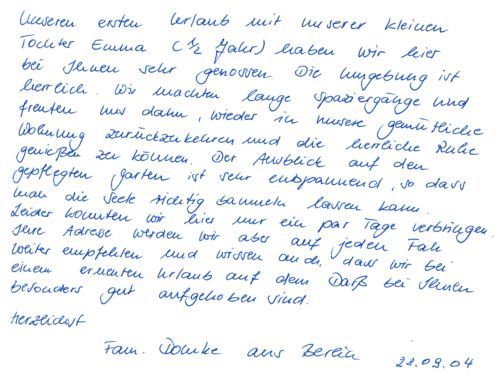 Unseren ersten Urlaub mit unserer kleinen
Tochter Emma (½ Jahr) haben wir hier
bei Ihnen sehr genossen. Die Umgebung ist
herrlich. Wir machten lange Spaziergänge und
freuten uns dann, wieder in unsere gemütliche
Wohnung zurückzukehren und die herrliche Ruhe
genießen zu können. Der Ausblick auf den
gepflegten Garten ist sehr entspannend, so dass
man die Seele richtig baumeln lassen kann.
Leider konnten wir hier nur ein par Tage verbringen.
Ihre Adresse werden wir aber auf jeden Fall
weiter empfehlen und wissen auch, dass wir bei
einem erneuten Urlaub auf dem Darß bei Ihnen
besonders gut aufgehoben sind.
Herzlichst
Fam. Domke aus Berlin 28.09.04